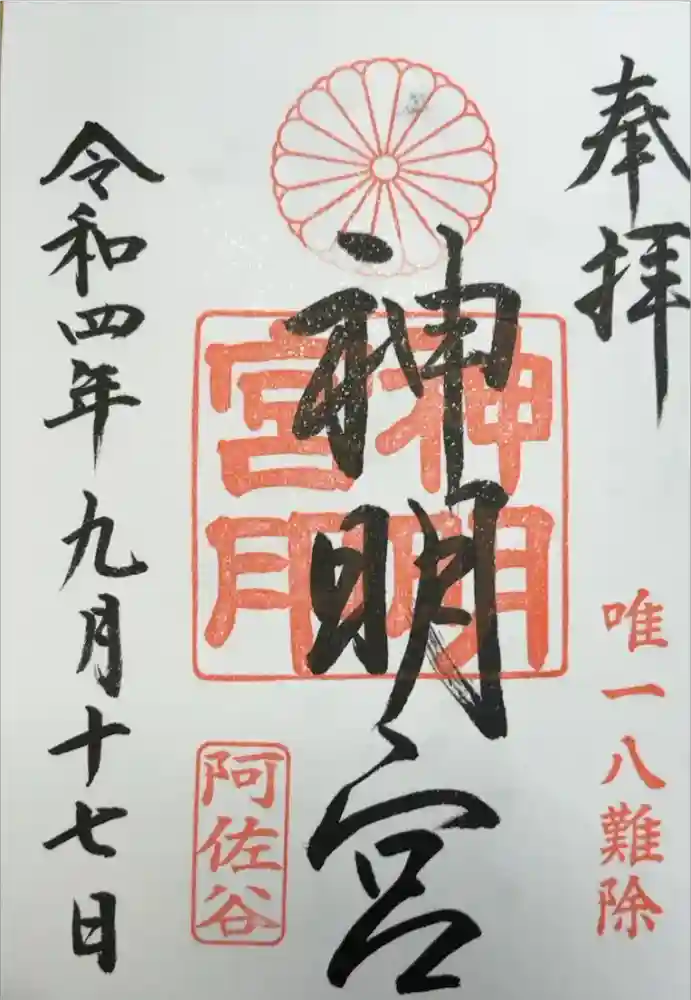 奉拝
唯一八難除
神明宮
神明
宮
阿佐谷
令和四年九月十七日